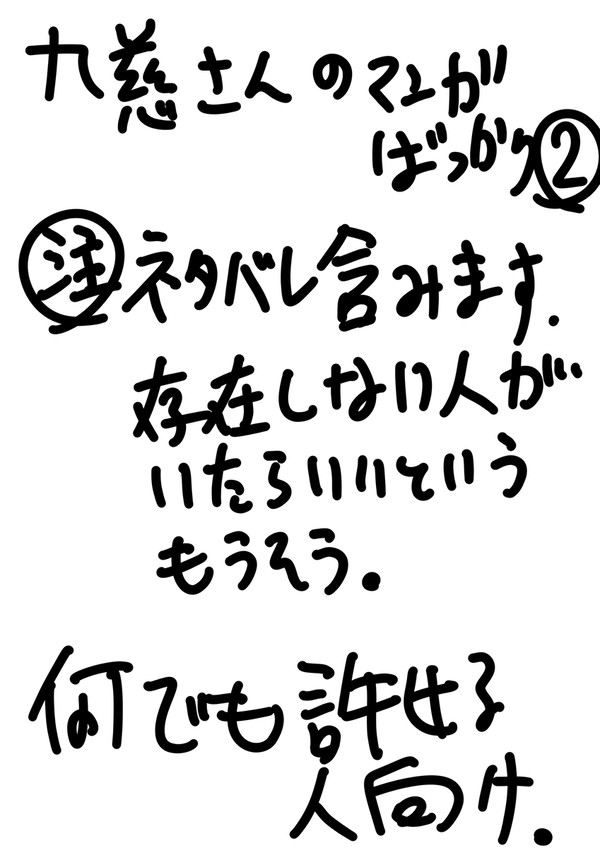 九慈さんのマンガ
ばっかり②
㊟ネタバレ含みます.
存在しない人が…
いたらいいという
もうそう。
何でも許せる
人向け.